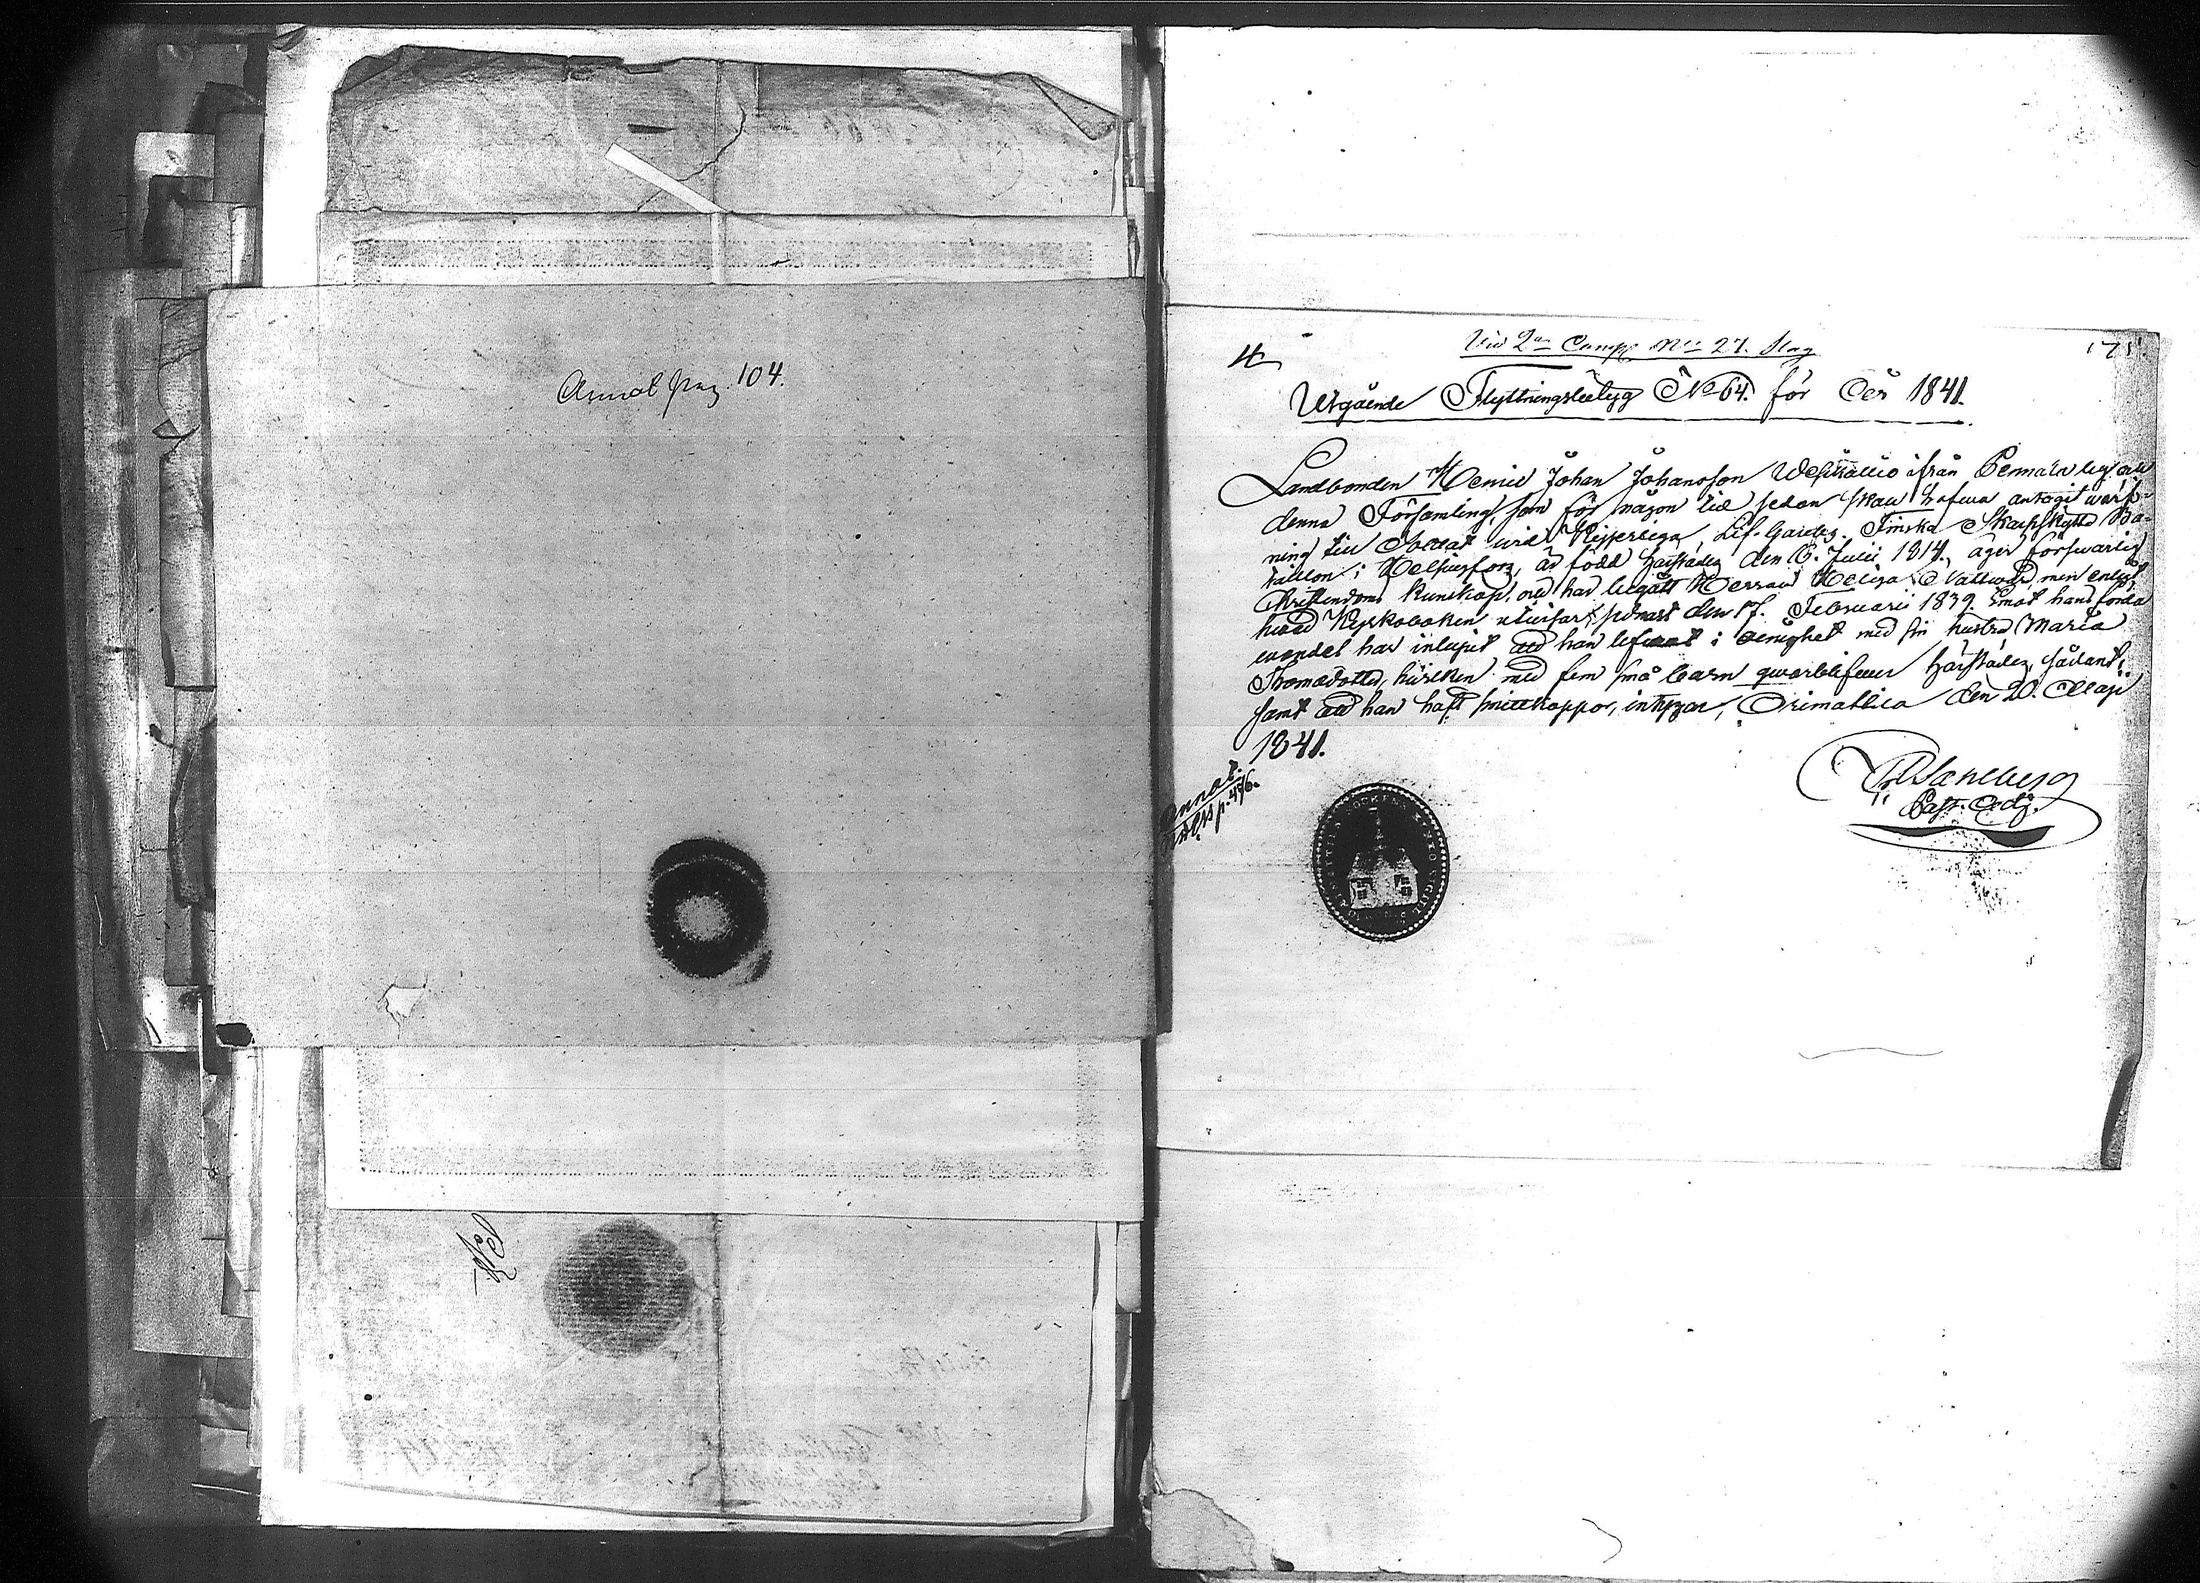 Annot. pag. 104.
175.
Vid 2:a Comp. N:o 27. Slag
Utgående Flyttningsbetyg No 64. för År 1841.
Landbonden Henric Johan Johansson ifrån Pennala by och
denna Församling, som för någon tid sedan skall hafwa antagit wärf-
ning till Soldat wid Kejserliga Lif-Gardes Finska Skarpskytte Ba-
taillon i Helsingfors, är född härstädes den 6. Julii 1814, äger förswarlig
Christendoms kunskap, och har begått Herrans Heliga Nattward, men enligt
hwad Kyrkoboken utwisar, senast den 17. Februarii 1839. Emot hans förda
wandel har inlupit att han lefwat i oenighet med sin hustru Maria
Thomasdotter, hwilken med fem små barn qwarblifwer härstädes, sådant,
samt att han haft smittkoppor, intygar, Orimattila den 20. Maji
1841.
Past. Adj.
Annot.
p. 476.